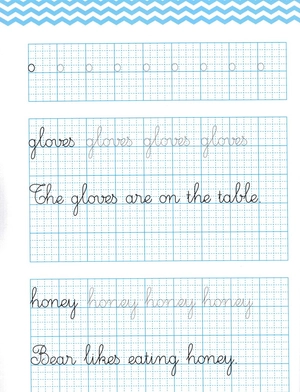 o o o o o o o o o
gloves gloves gloves gloves
The gloves are on the table.
honey honey honey honey
Bear likes eating honey.